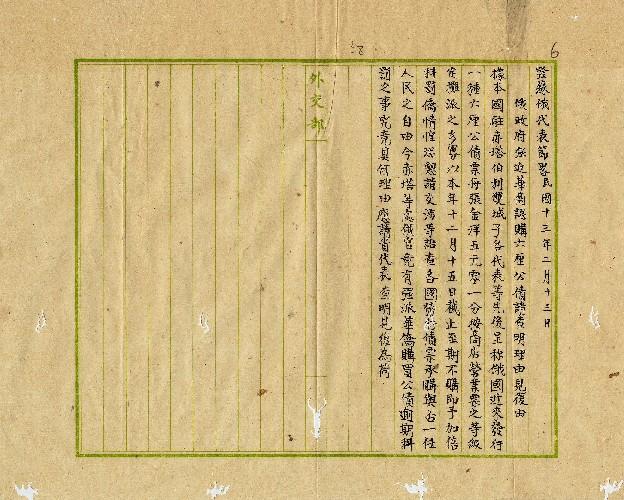 6
發蘇俄代表節畧 民國十三年二月十三日
俄政府強迫華商認購六厘公債請查明理由見復由
據本國駐赤塔伯利雙城子各代表等先後呈稱俄國近來發行
一種六厘公債票每張金洋五元零一分按商店營業票之等級
定攤派之多寡以本年十二月十五日截止至期不購即予加倍
科罰僑情惶恐懇請交涉等語查各國發行債票承購與否一任
人民之自由今赤塔等處俄官竟有强派華僑購買公債逾期科
罰之事究竟具何理由應請貴代表查明見復為荷
外交部